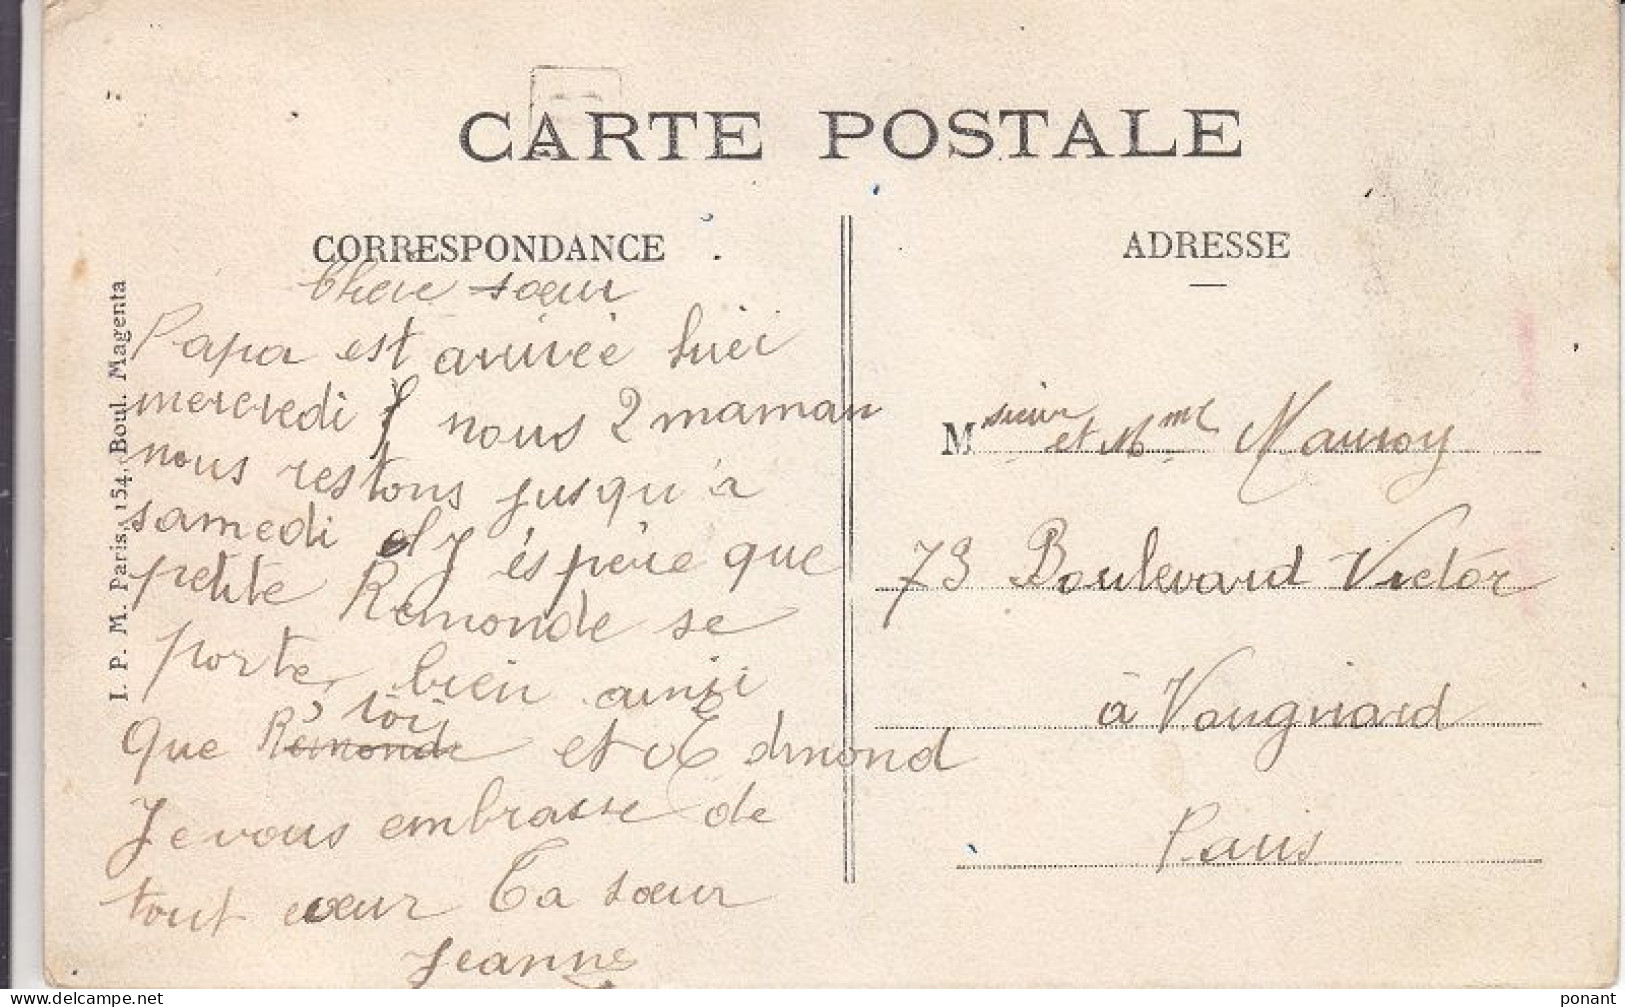 CARTE POSTALE
CORRESPONDANCE
Chere sœur
Papa est arrivée hiéi
mercredi nous 2 maman
nous restons jusqu'à
samedi J'éspère que
petite Remonde se
porte bien ainsi
que Remonde toi et Edmond
Je vous embrasse de
tout cœur Ta sœur
Jeanne
I. P. M. Paris, 154, Boul. Magenta
ADRESSE
Msieur et Mme Mauroy
73 Boulevard Victor
à Vaugirard
Paris
delcampe.net
ponant